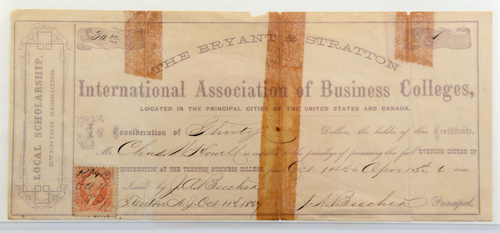 30.00
1
THE BRYANT & STRATTON
International Association of Business Colleges,
LOCATED IN THE PRINCIPAL CITIES OF THE UNITED STATES AND CANADA.
LOCAL SCHOLARSHIP.
EVENING SESSIONS.
Consideration of Thirty Dollars, the holder of this Certificate,
Mr. Chas. is entitled to the privilege of pursuing the full EVENING COURSE OF
INSTRUCTION AT THE TRENTON BUSINESS COLLEGE, from Oct 1st to April
Issued by J. A. Beecher
Trenton N.J. Oct 11th, 1867 J. A. Beecher Principal.